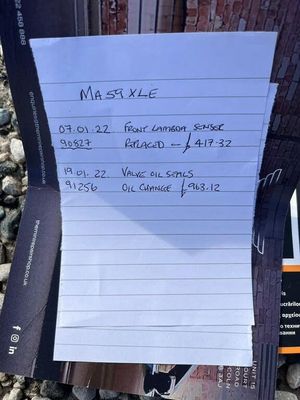 MA59 XLE
07.01.22 FRONT LAMBDA SENSER
90827 REPLACED — £417.32
19.01.22. VALVE OIL SEALS
91256 OIL CHANGE £963.12
UNIT 15
COURT
ROAD